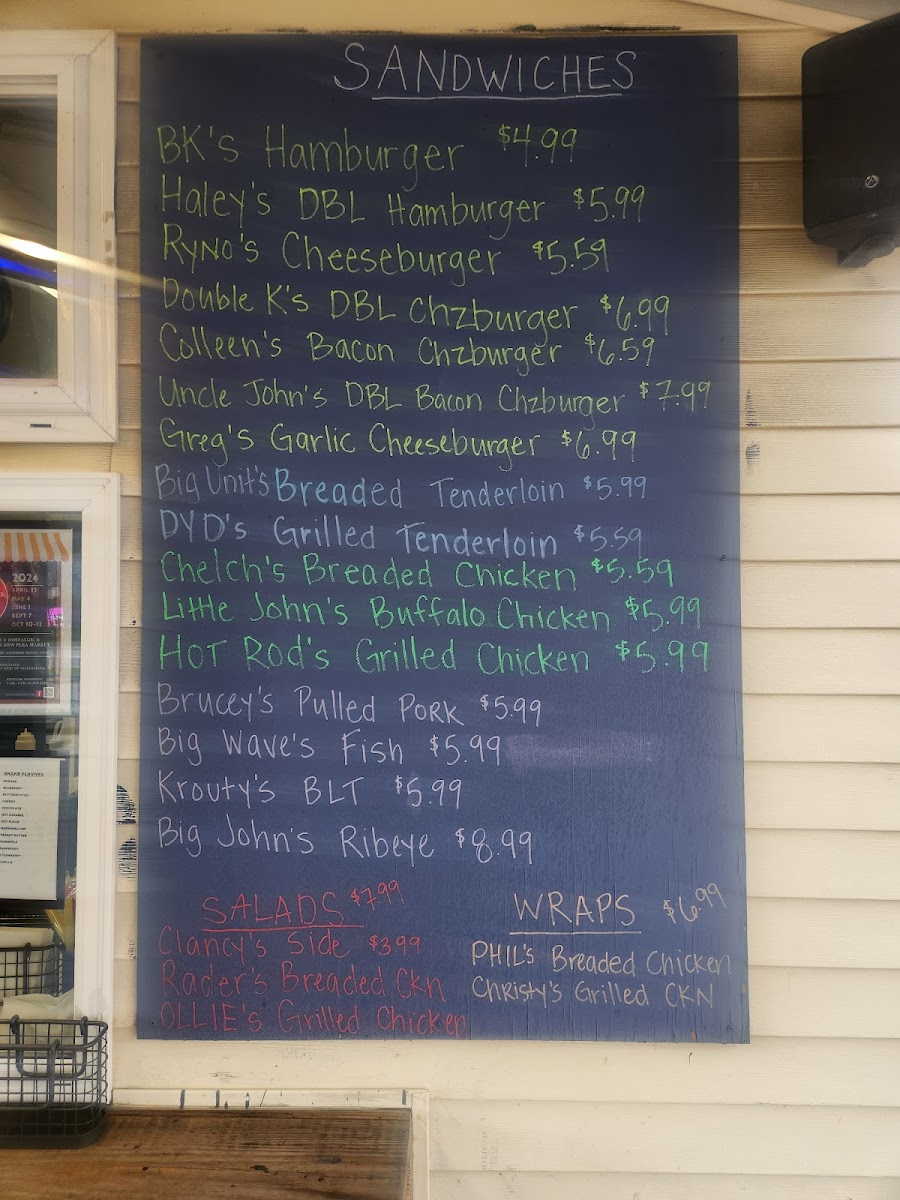 SANDWICHES
BK's Hamburger $4.99
Haley's DBL Hamburger $5.99
Ryno's Cheeseburger $5.59
Double K's DBL Chzburger $6.99
Colleen's Bacon Chzburger $6.59
Uncle John's DBL Bacon Chzburger $7.99
Greg's Garlic Cheeseburger $6.99
Big Unit's Breaded Tenderloin $5.99
DYD's Grilled Tenderloin $5.59
Chelch's Breaded Chicken $5.59
Little John's Buffalo Chicken $5.99
Hot Rod's Grilled Chicken $5.99
Brucey's Pulled Pork $5.99
Big Wave's Fish $5.99
Krouty's BLT $5.99
Big John's Ribeye $8.99
SALADS $7.99
Clancy's Side $3.99
Rader's Breaded Ckn
OLLIE's Grilled Chicken
WRAPS $6.99
PHIL's Breaded Chicken
Christy's Grilled CKN
2024
APRIL 13
MAY 4
JUNE 1
SEPT 7
SHAKE FLAVORS